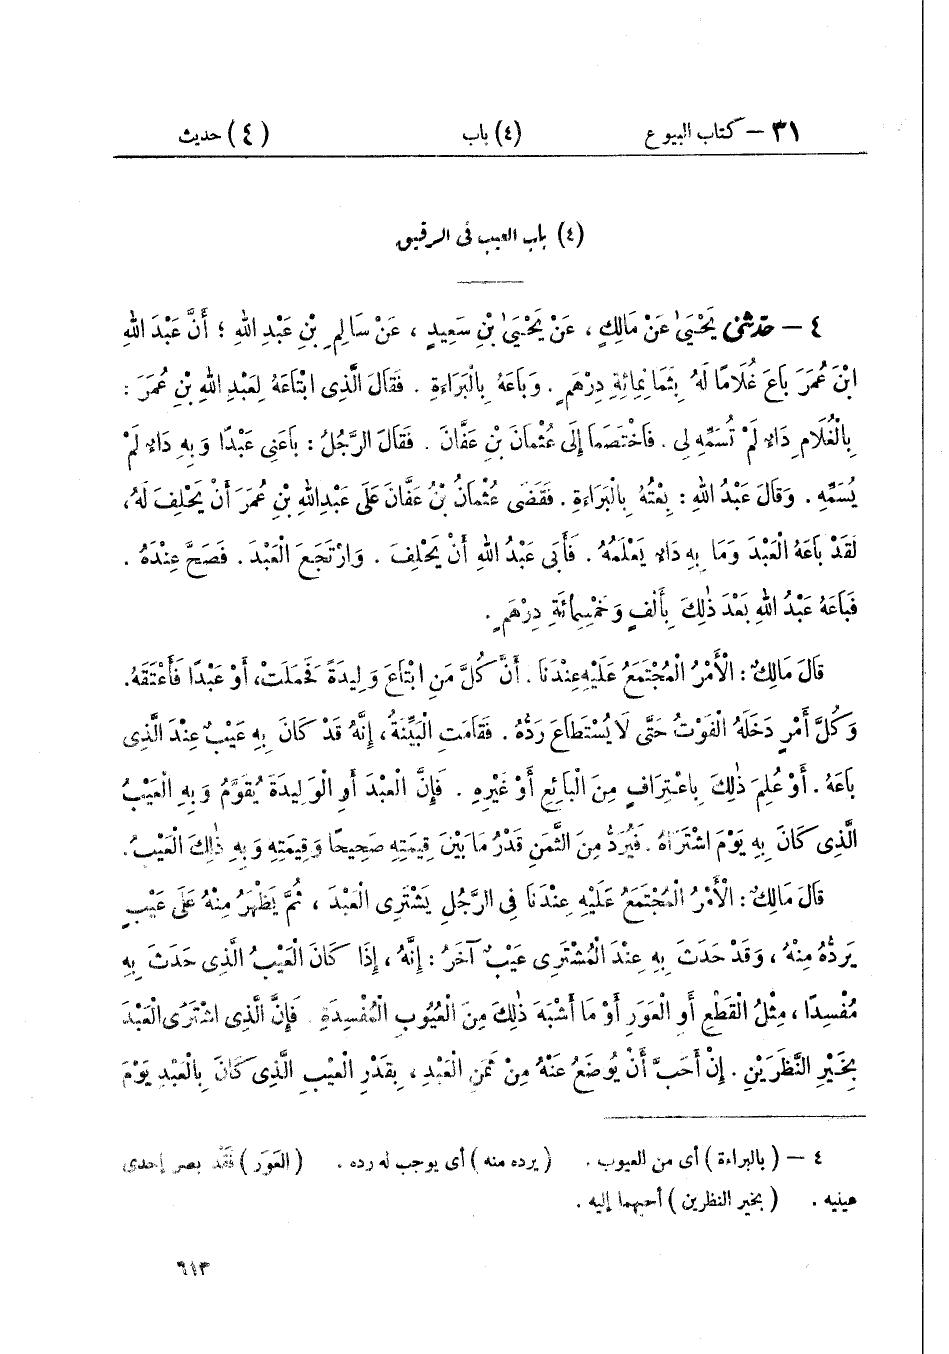 ٣١ – كتاب البيوع (٤) باب (٤) حديث
(٤) باب العيب فى الرقيق
٤ – حَدَّثَنِى يَحْيَىٰ عَنْ مَالِكٍ ، عَنْ يَحْيَىٰ بْنِ سَعِيدٍ ، عَنْ سَالِمِ بْنِ عَبْدِ اللهِ ؛ أَنَّ عَبْدَ اللهِ
ابْنَ عُمَرَ بَاعَ غُلَامًا لَهُ بِثَمَانِمِائَةِ دِرْهَمٍ . وَبَاعَهُ بِالْبَرَاءَةِ . فَقَالَ الَّذِى ابْتَاعَهُ لِعَبْدِ اللهِ بْنِ عُمَرَ :
بِالْغُلَامِ دَاءٌ لَمْ تُسَمِّهِ لِى . فَاخْتَصَمَا إِلَى عُثْمَانَ بْنِ عَفَّانَ . فَقَالَ الرَّجُلُ : بَاعَنِى عَبْدًا وَبِهِ دَاءٌ لَمْ
يُسَمِّهِ . وَقَالَ عَبْدُ اللهِ : بِعْتُهُ بِالْبَرَاءَةِ . فَقَضَى عُثْمَانُ بْنُ عَفَّانَ عَلَى عَبْدِ اللهِ بْنِ عُمَرَ أَنْ يَحْلِفَ لَهُ ،
لَقَدْ بَاعَهُ الْعَبْدَ وَمَا بِهِ دَاءٌ يَعْلَمُهُ . فَأَبَى عَبْدُ اللهِ أَنْ يَحْلِفَ . وَارْتَجَعَ الْعَبْدَ . فَصَحَّ عِنْدَهُ .
فَبَاعَهُ عَبْدُ اللهِ بَعْدَ ذٰلِكَ بِأَلْفٍ وَخَمْسِمِائَةِ دِرْهَمٍ .
قَالَ مَالِكٌ : الْأَمْرُ الْمُجْتَمَعُ عَلَيْهِ عِنْدَنَا . أَنَّ كُلَّ مَنِ ابْتَاعَ وَلِيدَةً فَحَمَلَتْ ، أَوْ عَبْدًا فَأَعْتَقَهُ .
وَكُلَّ أَمْرٍ دَخَلَهُ الْفَوْتُ حَتَّى لَا يُسْتَطَاعَ رَدُّهُ . فَقَامَتِ الْبَيِّنَةُ ، إِنَّهُ قَدْ كَانَ بِهِ عَيْبٌ عِنْدَ الَّذِى
بَاعَهُ . أَوْ عُلِمَ ذٰلِكَ بِاعْتِرَافٍ مِنَ الْبَائِعِ أَوْ غَيْرِهِ . فَإِنَّ الْعَبْدَ أَوِ الْوَلِيدَةَ يُقَوَّمُ وَبِهِ الْعَيْبُ
الَّذِى كَانَ بِهِ يَوْمَ اشْتَرَاهُ . فَيُرَدُّ مِنَ الثَّمَنِ قَدْرُ مَا بَيْنَ قِيمَتِهِ صَحِيحًا وَقِيمَتِهِ وَبِهِ ذٰلِكَ الْعَيْبُ .
قَالَ مَالِكٌ : الْأَمْرُ الْمُجْتَمَعُ عَلَيْهِ عِنْدَنَا فِى الرَّجُلِ يَشْتَرِى الْعَبْدَ ، ثُمَّ يَظْهَرُ مِنْهُ عَلَى عَيْبٍ
يَرُدُّهُ مِنْهُ ، وَقَدْ حَدَثَ بِهِ عِنْدَ الْمُشْتَرِى عَيْبٌ آخَرُ : إِنَّهُ ، إِذَا كَانَ الْعَيْبُ الَّذِى حَدَثَ بِهِ
مُفْسِدًا ، مِثْلُ الْقَطْعِ أَوِ الْعَوَرِ أَوْ مَا أَشْبَهَ ذٰلِكَ مِنَ الْعُيُوبِ الْمُفْسِدَةِ . فَإِنَّ الَّذِى اشْتَرَى الْعَبْدَ
بِخَيْرِ النَّظَرَيْنِ . إِنْ أَحَبَّ أَنْ يُوضَعَ عَنْهُ مِنْ ثَمَنِ الْعَبْدِ ، بِقَدْرِ الْعَيْبِ الَّذِى كَانَ بِالْعَبْدِ يَوْمَ
٤ – ( بالبراءة ) أى من العيوب . ( يرده منه ) أى يوجب له رده . ( العَوَر ) فَقْد بصر إحدى
عينيه . ( بخير النظرين ) أحبهما إليه .
٦١٣